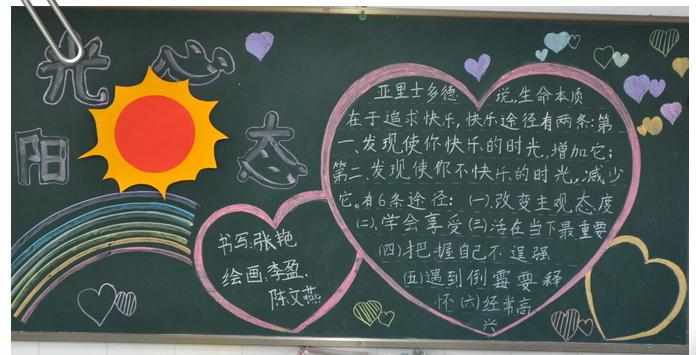 阳光心态
亚里士多德 说,生命本质
在于追求快乐,快乐途径有两条:第
一、发现使你快乐的时光,增加它;
第二、发现使你不快乐的时光,减少
它。有6条途径: (一).改变主观态度
(二).学会享受(三)活在当下最重要
(四)把握自己不逞强
(五)遇到倒霉要释
怀(六)经常高
兴
书写:张艳
绘画:李盈、
陈文燕